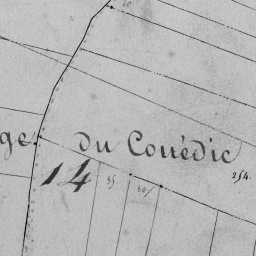 ge du Couëdic
14
254.